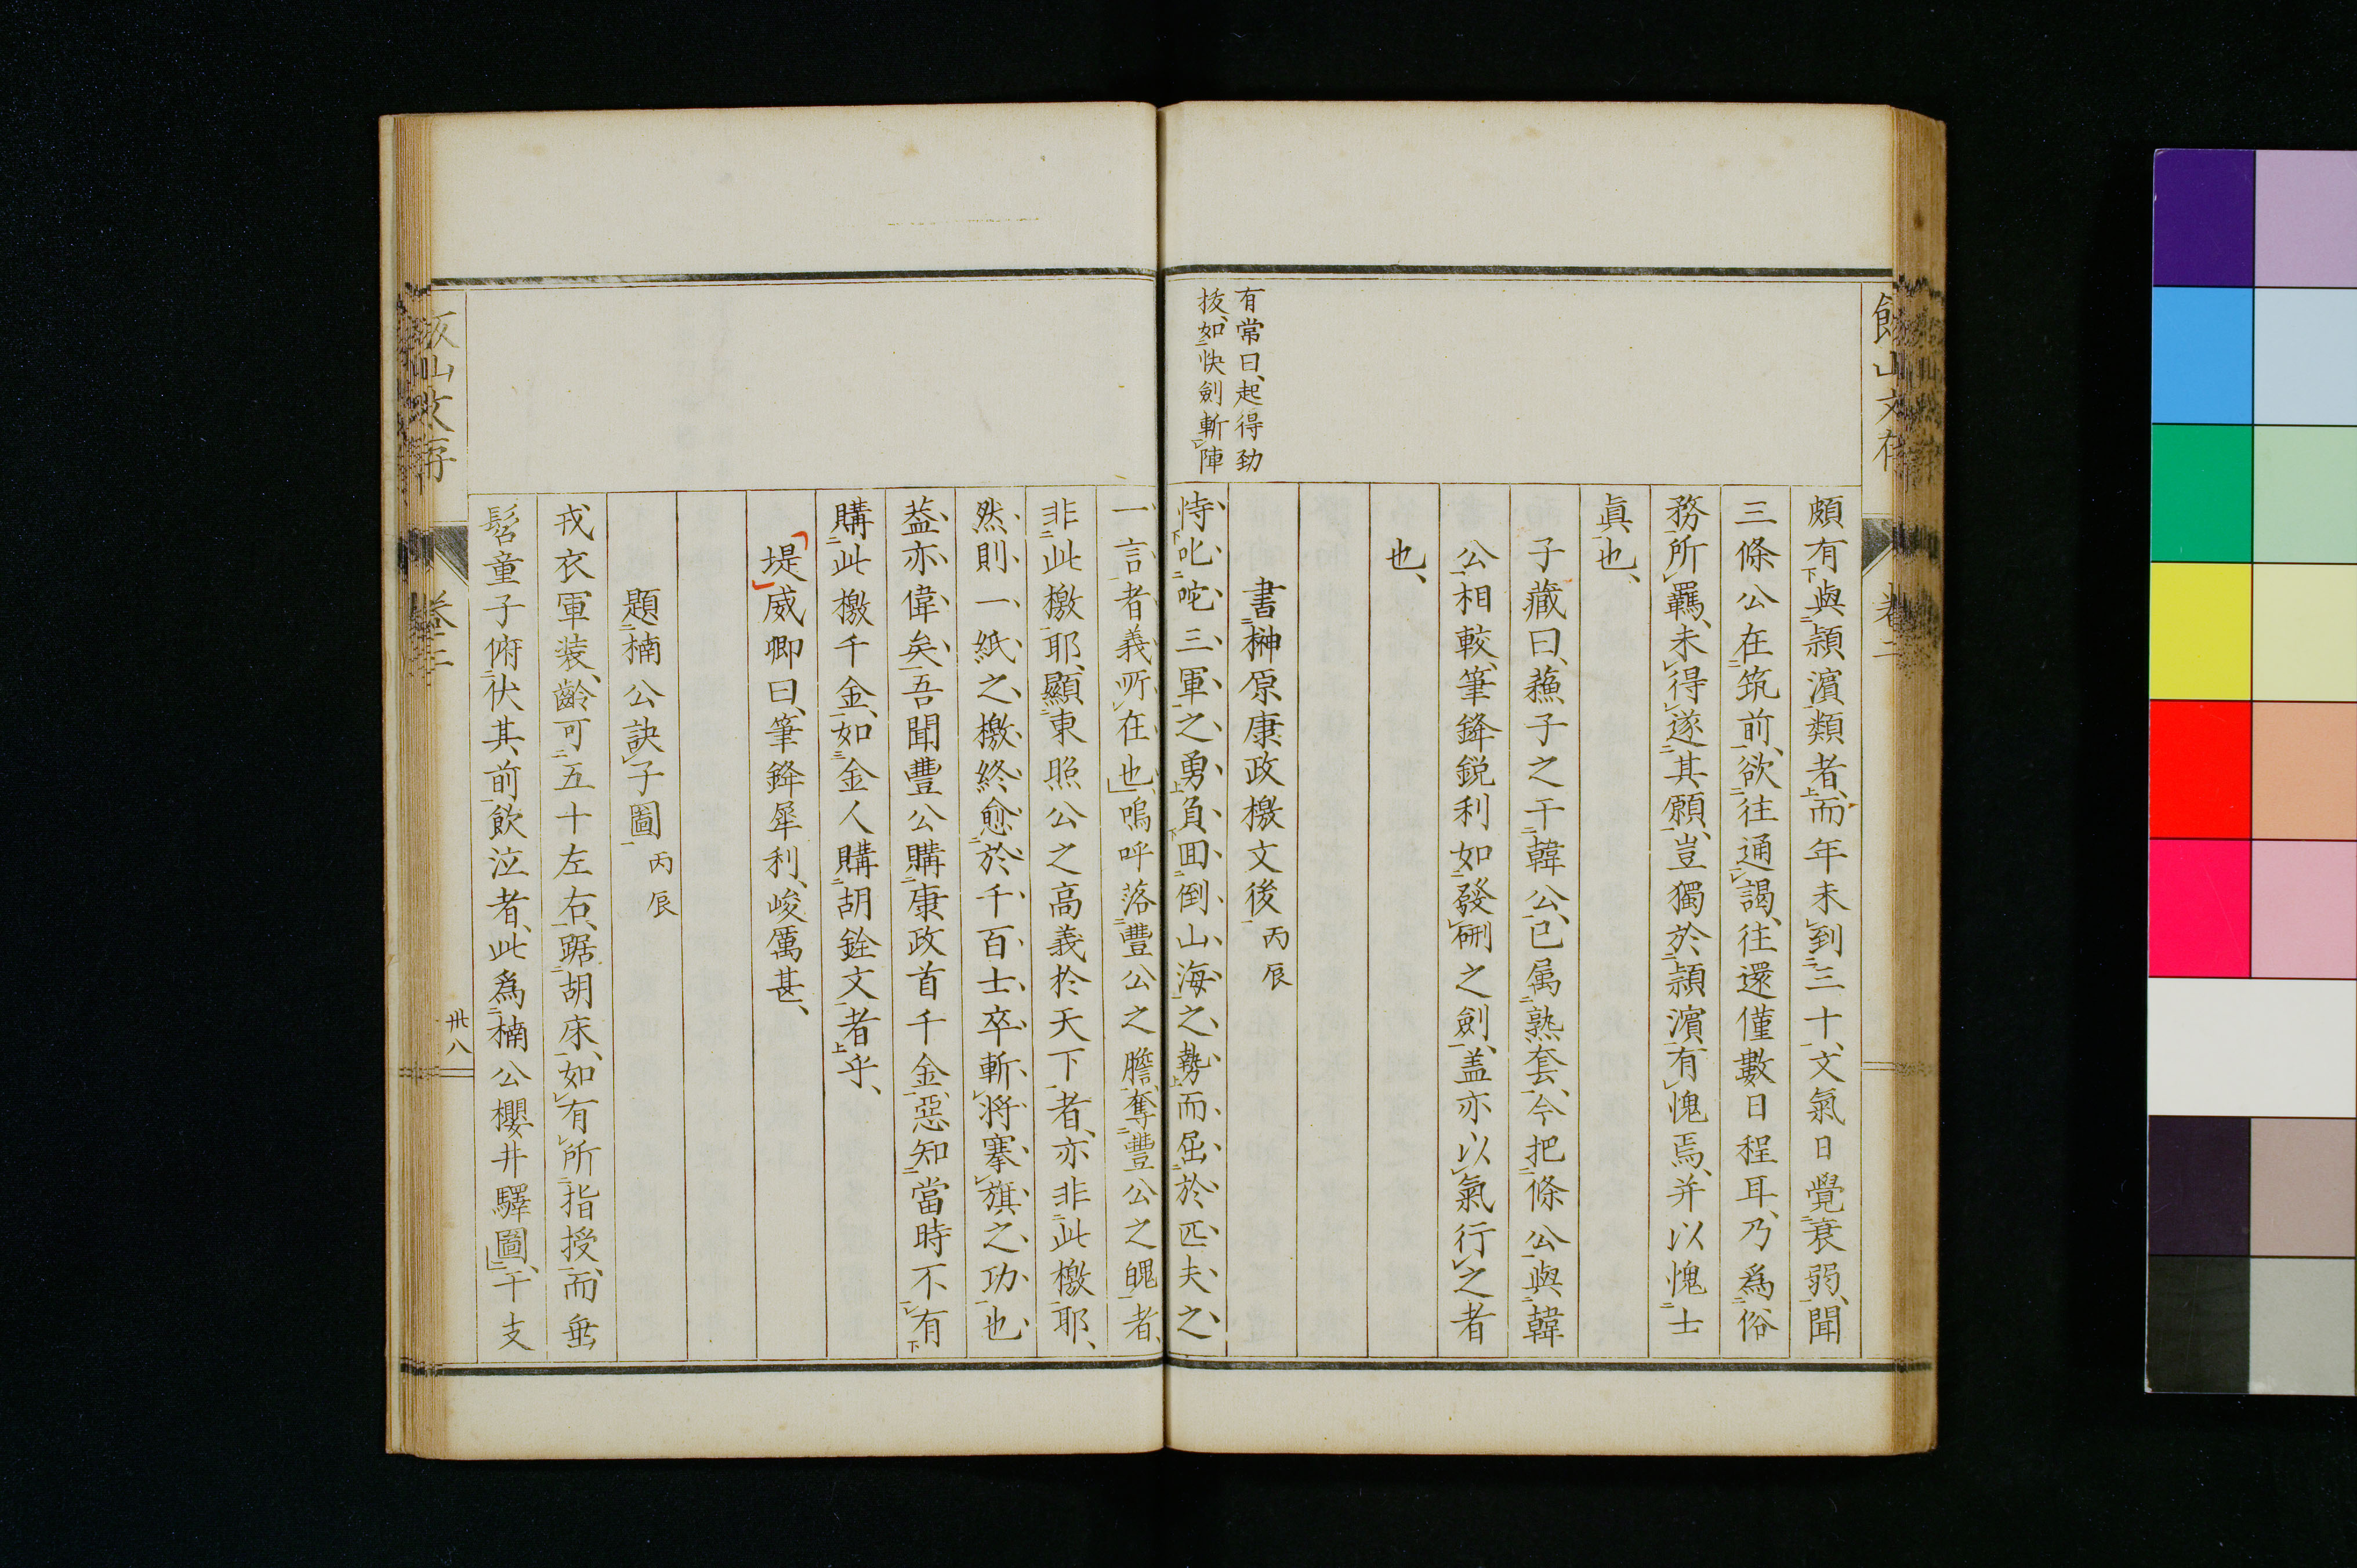 飯山文存
卷二
頗有與潁濵類者、而年未到三十、文氣日覺衰弱、聞
三條公在筑前、欲往通謁、往還僅數日程耳、乃爲俗
務所羈、未得遂其願、豈獨於潁濵有愧焉、并以愧士
眞也、
子藏曰、蘓子之干韓公、已属熟套、今把條公與韓
公相較、筆鋒鋭利如發硎之劍、盖亦以氣行之者
也、
書榊原康政檄文後 丙辰
有常曰、起得勁
抜、如快劍斬陣
恃叱咤三軍之勇、負回倒山海之勢、而屈於匹夫之
一言者、義所在也、嗚呼落豐公之膽、奪豐公之魄者、
非此檄耶、顯東照公之高義於天下者、亦非此檄耶、
然則一紙之檄、終愈於千百士卒斬将搴旗之功也、
葢亦偉矣、吾聞豐公購康政首千金、惡知當時不有
購此檄千金、如金人購胡銓文者乎、
堤威卿曰、筆鋒犀利、峻厲甚、
題楠公訣子圖 丙辰
戎衣軍装、齡可五十左右、踞胡床、如有所指授、而垂
髫童子俯伏其前飲泣者、此爲楠公櫻井驛圖、干支
飯山文存
卷二
卅八